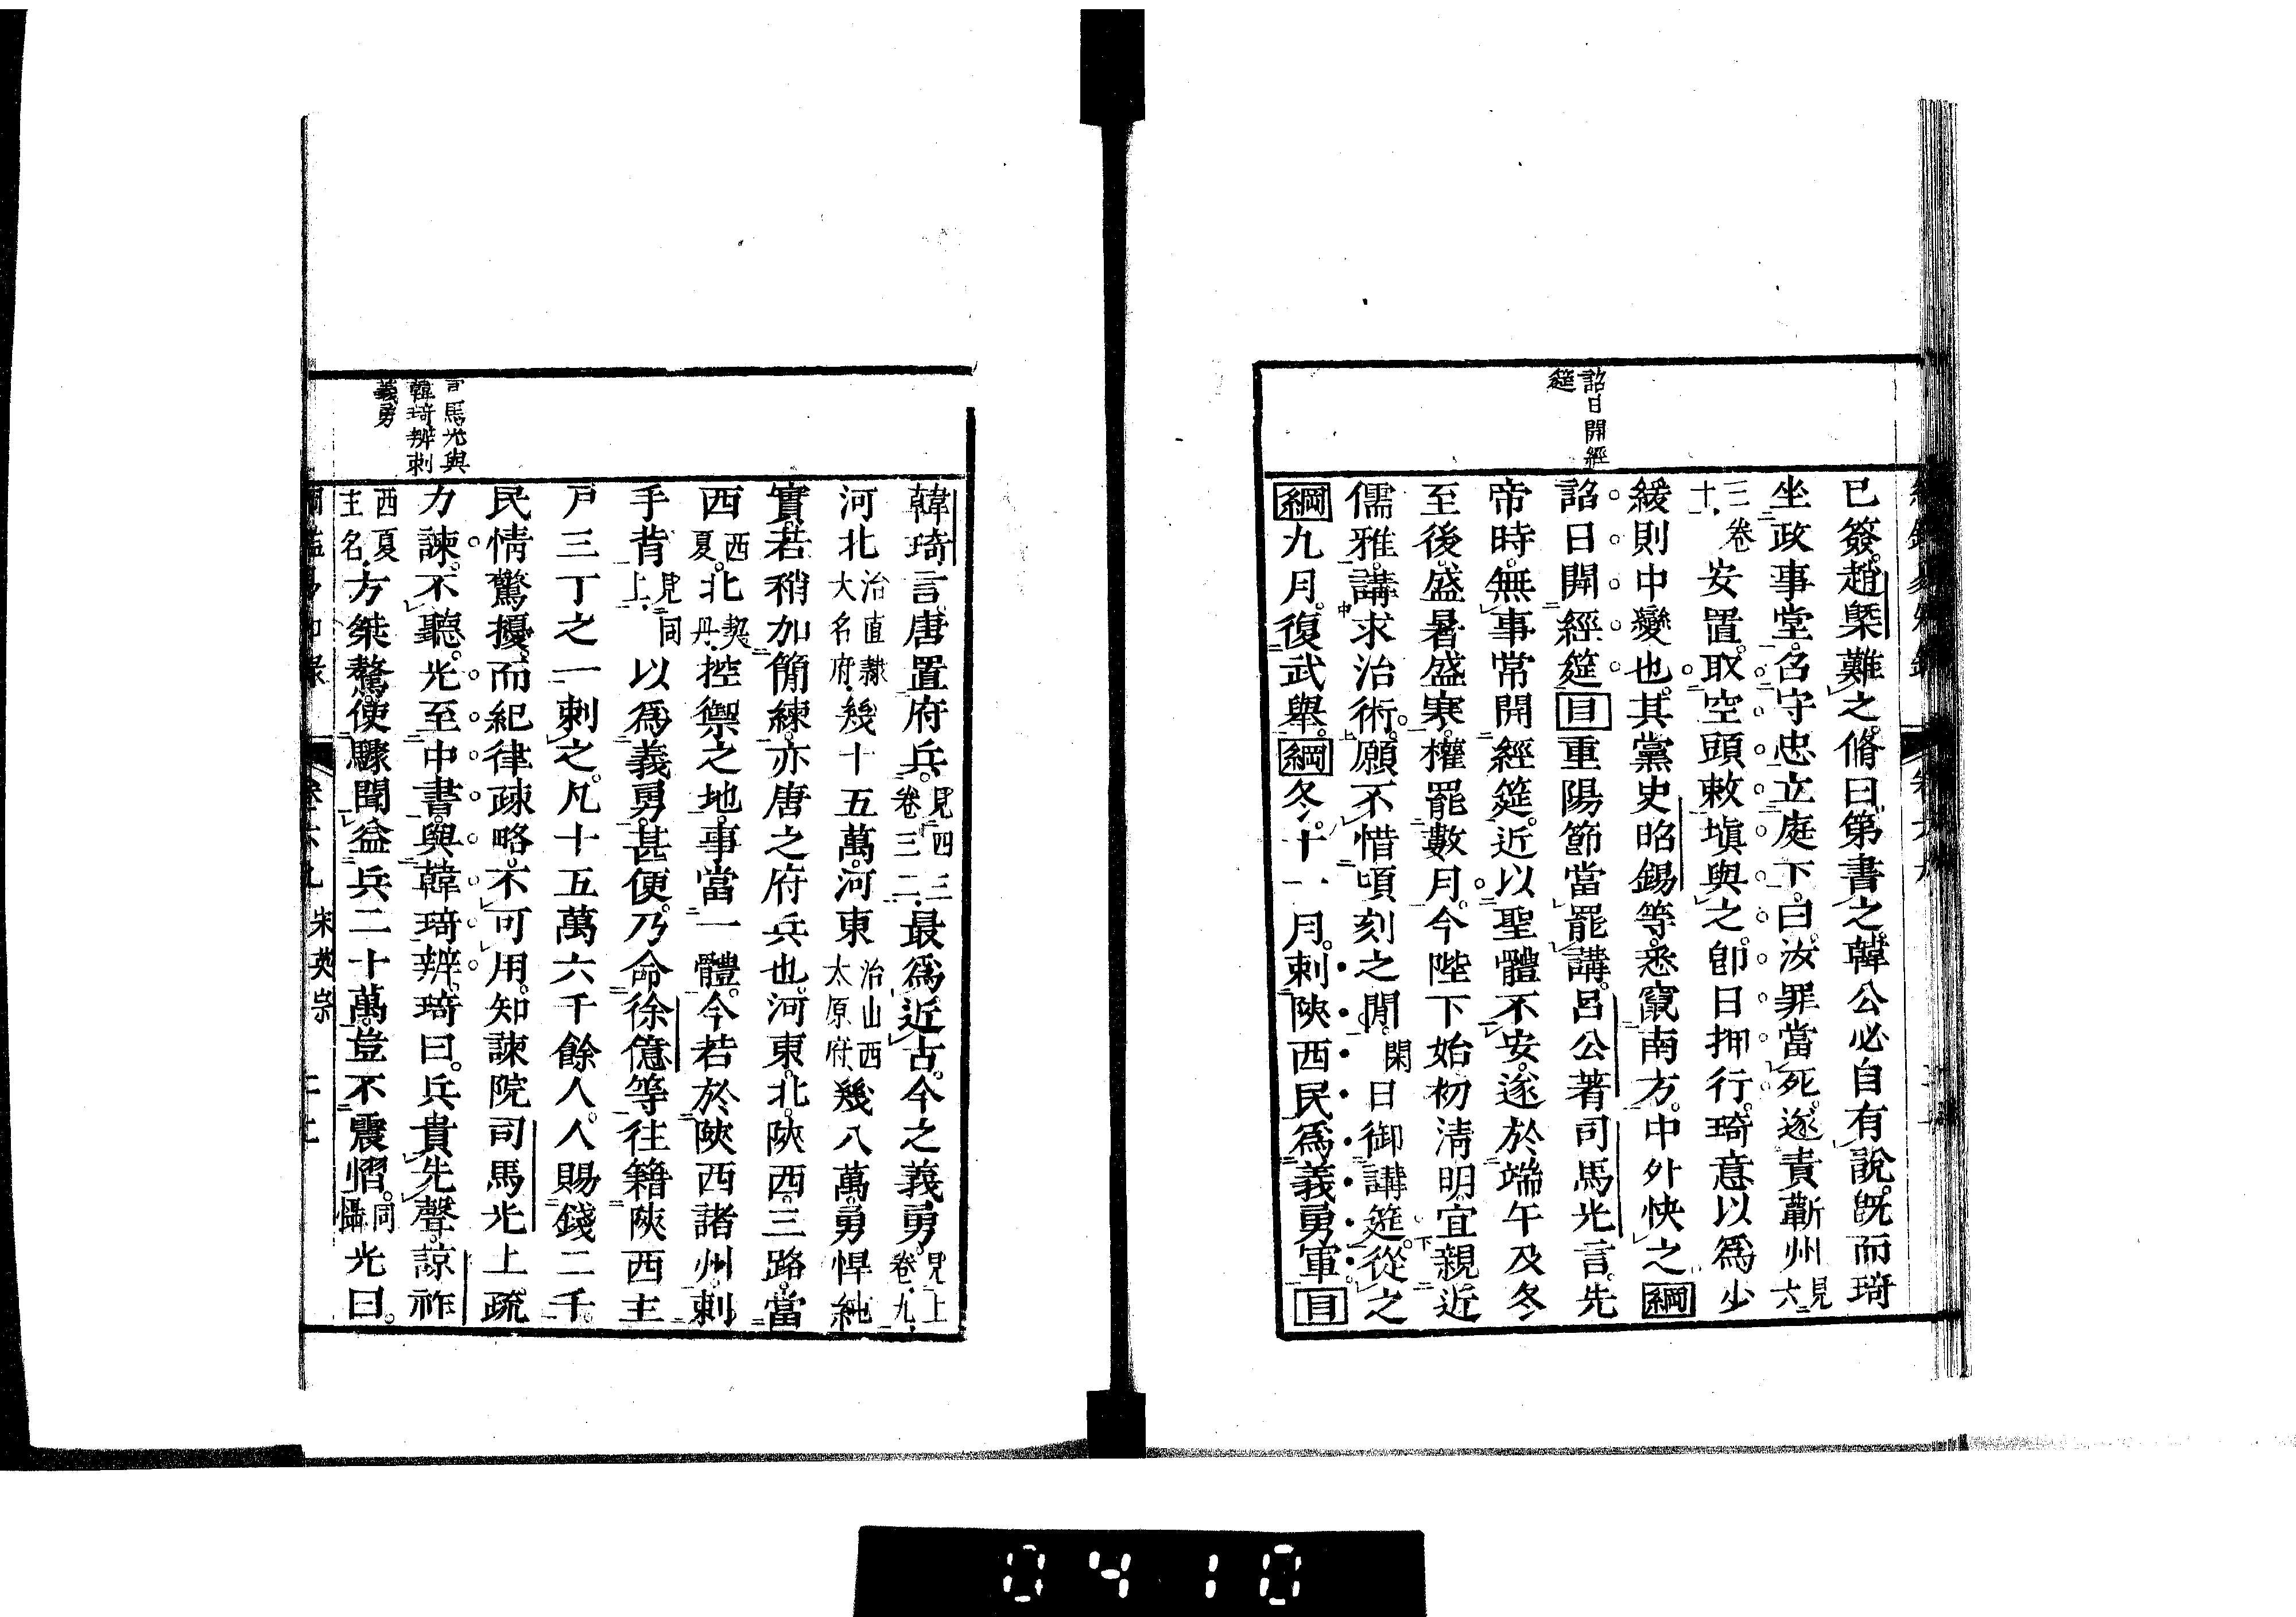 詔日開經
筵
已簽。趙槩難之。脩曰第書之。韓公必自有說。旣而琦
坐政事堂。召守忠立庭下。曰汝罪當死。遂責蘄州見六
三卷十一安置。取空頭敕塡與之。卽日押行。琦意以爲少
緩則中變也。其黨史昭錫等。悉竄南方。中外快之綱
詔日開經筵目重陽節當罷講。呂公著司馬光言。先
帝時。無事常開經筵。近以聖體不安。遂於端午及冬
至後。盛暑盛寒。權罷數月。今陛下始初淸明。宜親近
儒雅。講求治術。願不惜頃刻之閒。閑日御講筵。從之
綱九月。復武舉。綱冬。十一月。刺陝西民爲義勇軍。目
韓琦言。唐置府兵。見四三卷三二最爲近古。今之義勇。見上卷九
河北治直隸大名府幾十五萬。河東治山西太原府幾八萬。勇悍純
實。若稍加簡練。亦唐之府兵也。河東。北。陝西。三路。當
西西夏。北契丹控禦之地。事當一體。今若於陝西諸州。刺
手背見同上以爲義勇。甚便。乃命徐億等往籍陝西主
戶三丁之一刺之。凡十五萬六千餘人。人賜錢二千。
民情驚擾。而紀律疎略。不可用。知諫院司馬光上疏
力諫。不聽。光至中書。與韓琦辨。琦曰。兵貴先聲。諒祚
西夏主名方桀驁。使驟聞益兵二十萬。豈不震慴。同懾光曰。
司馬光與
韓琦辨刺
義勇
宋英宗